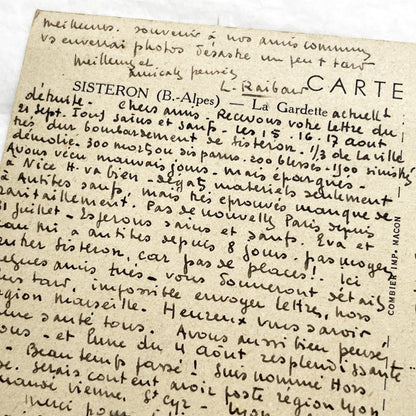 meilleurs. souvenir à nos amis communs
vs enverrai photos désastre un peu + tard
meilleures et
amicales pensées
L. Raibaud
CARTE
SISTERON (B.-Alpes) — La Gardette actuellt
détruite - chers amis - Recevons votre lettre du
21 sept. Tous sains et saufs. les 15. 16. 17 août
très dur bombardement de Sisteron. 1/3 de la ville
démolie. 300 morts ou disparus. 200 blessés. 1500 sinistrés
Avons vécu mauvais jours - mais épargnés -
à Nice H. va bien - dégats matériels seulement
à Antibes saufs, mais très éprouvés manque de
ravitaillement. Pas de nouvelles Paris depuis
juillet - Espérons sains et saufs. Eva et
mi à antibes depuis 8 jours. pas moyen
Sisteron, car pas de place! Ici
amis tués - vous donneront détail
tard, impossible envoyer lettres, hors
région Marseille. Heureux vous savoir
santé tous. Avons aussi bien pensé
- et lune du 4 Août resplendissante
- Beau temps passé! Suis nommé Hors
. serais content avoir poste région Lyon
vienne, St Cyr -
merci pour
COMBIER IMP. MACON